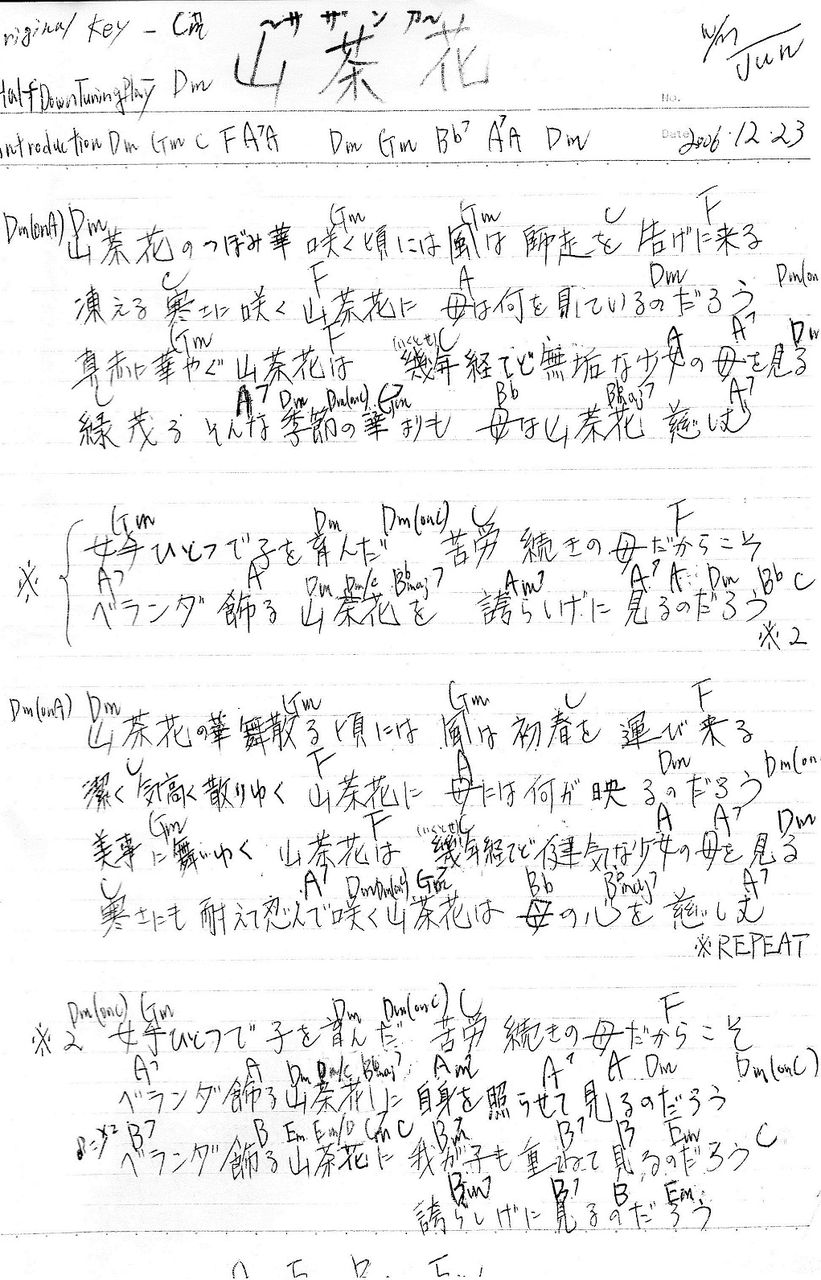 riginal Key - C
〜サザンカ〜
山茶花
Jun
Half Down Tuning Play Dm
No.
Introduction Dm Gm C F A7 A Dm Gm Bb7 A7 A Dm
Date 2006.12.23
Dm(onA) Dm Gm Gm C F
山茶花のつぼみ華 咲く頃には風は 師走を 告げに来る
C F A Dm Dm(on
凍える寒さに咲く 山茶花に 母は何を見ているのだろう
Gm F (いくとせ) C A A7 Dm
真赤に華やぐ山茶花は 幾年経てど無垢な少女の母を見る
C A7 Dm Dm(onC) Gm7 Bb Bbmaj7 A7
緑茂る そんな季節の華よりも 母は山茶花 慈しむ
Gm Dm Dm(onC) C F
※ 女手ひとつで子を育んだ 苦労続きの母だからこそ
A7 A Dm Dm/C Bbmaj7 Am7 A7 A Dm Bb C
ベランダ飾る 山茶花を 誇らしげに見るのだろう
※2
Dm(onA) Dm Gm Gm C F
山茶花の華舞散る頃には 風は初春を 運び来る
C F A Dm Dm(on
潔く気高く散りゆく 山茶花に 母には何が映るのだろう
Gm F (いくとせ) C A A7 Dm
美事に舞いゆく 山茶花は 幾年経てど健気な少女の母を見る
C A7 Dm Dm(onC) Gm7 Bb Bbmaj7 A7
寒さにも耐えて忍んで咲く山茶花は 母の心を 慈しむ
※REPEAT
Dm(onC) Gm Dm Dm(onC) C F
※2 女手ひとつで子を育んだ 苦労続きの母だからこそ
A7 A Dm Dm/C Bbmaj7 Am7 A7 A Dm Dm(onC)
ベランダ飾る山茶花に 自身を照らせて見るのだろう
B7 B Em Em/D C Bm7 B7 B Em C
ベランダ飾る山茶花に 我が子も重ねて見るのだろう
Bm7 B7 B Em
誇らしげに見るのだろう